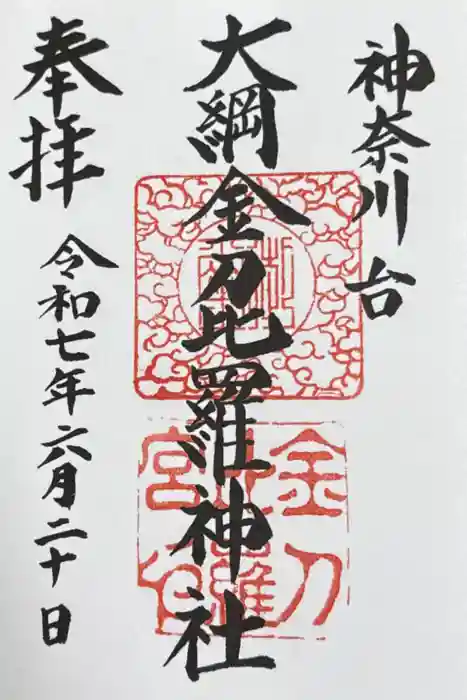 神奈川台
大綱金刀比羅神社
奉拝
令和七年六月二十日
金刀
宮